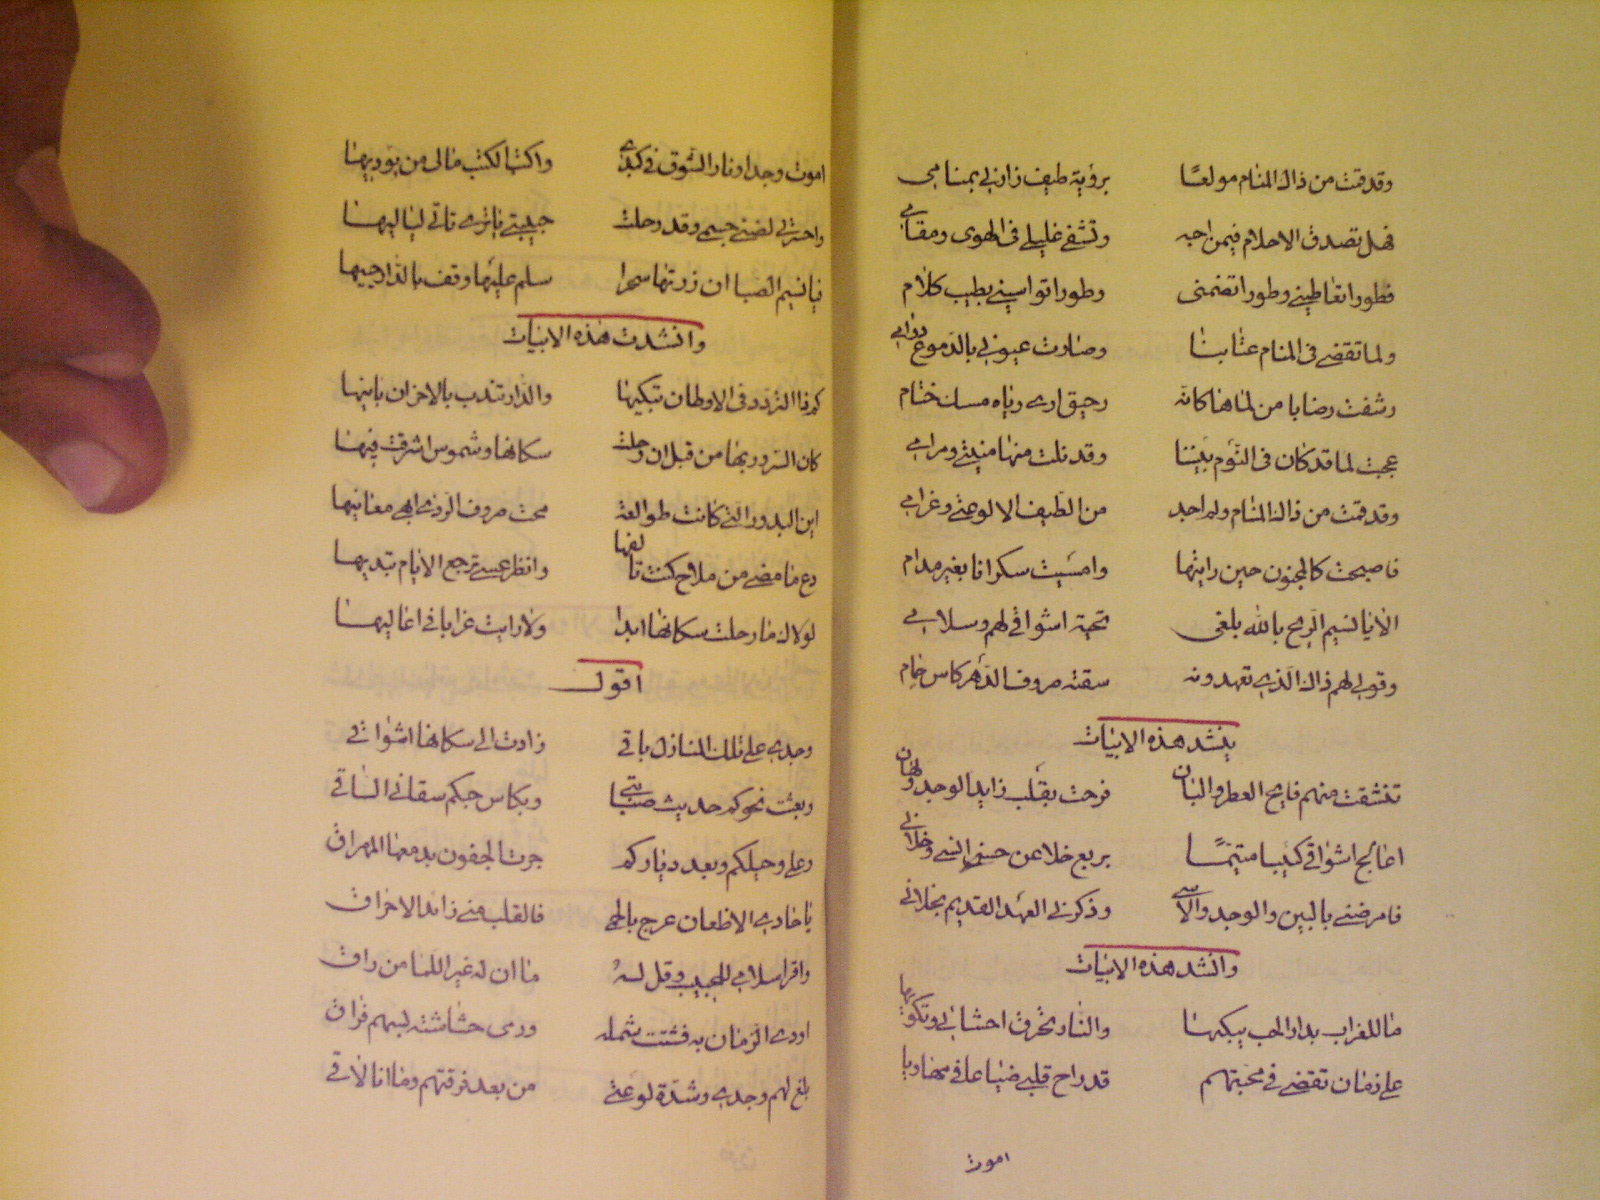 وقد قمت من ذاك المنام مولعا برؤية طيف زارني بمنامي
فهل تصدق الاحلام فيمن احبه وتشفى غليلي في الهوى ومقامي
فطورا تعاطيني وطورا تضمني وطورا تواسيني بطيب كلام
ولما تقضى في المنام عتابنا وصارت عيوني بالدموع دوامي
رشفت رضابا من لماها كانه رحيق ارى رياه مسك ختام
عجبت لما قد كان في النوم بيننا وقد نلت منها منيتي ومرامي
وقد قمت من ذاك المنام ولم اجد من الطيف الا لوعتي وغرامي
فاصبحت كالمجنون حين رايتها وامسيت سكرانا بغير مدام
الا يا نسيم الريح بالله بلغي تحية اشواقي لهم وسلامي
وقولي لهم ذاك الذي تعهدونه سقته صروف الدهر كاس حمام
ينشد هذه الابيات
تنشقت منهم فايح العطر والبان فرحت بقلب زايد الوجد ولهان
اعالج اشواقي كئيبا متيما بربع خلا عن حسن انسي وخلاني
فامرضني بالبين والوجد والاسى وذكرني العهد القديم بخلاني
وانشد هذه الابيات
ما للغراب بدار الحب يبكيها والنار تحرق احشائي وتكويها
على زمان تقضى في محبتهم قد راح قلبي ضياعا في مهاويها
اموت
اموت وجدا ونار الشوق في كبدي واكتب الكتب مالي من يوديها
واحسرتي لضنى جسمي وقد رحلت حبيبتي يا ترى تاتي لياليها
فيا نسيم الصبا ان زرتها سحرا سلم عليها وقف بالدار حييها
وانشدت هذه الابيات
كم ذا التردد في الاوطان تبكيها والدار تندب بالاحزان بانيها
كان السرور بها من قبل ان رحلت سكانها وشموس اشرقت فيها
اين البدور التي كانت طوالعه محت صروف الردى ابهى معانيها
دع ما مضى من ملاح كنت تالفها وانظر عسى ترجع الايام تبديها
لولاك ما رحلت سكانها ابدا ولا رايت غرابا في اعاليها
اقول
وجدي على تلك المنازل باقي زادت الى سكانها اشواقي
وبعثت نحوكم حديث صبابتي وبكاس حبكم سقاني الساقي
وعلى رحيلكم وبعد دياركم جرت الجفون بدمعها المهراق
يا حادي الاظعان عرج بالحمى فالقلب مني زائد الاحراق
واقرا سلامي للحبيب وقل له ما ان له غير اللما من راق
اودى الزمان به فشتت شمله ورمى حشاشته بسهم فراق
بلغ لهم وجدي وشدة لوعتي من بعد فرقتهم وما انا لاقي